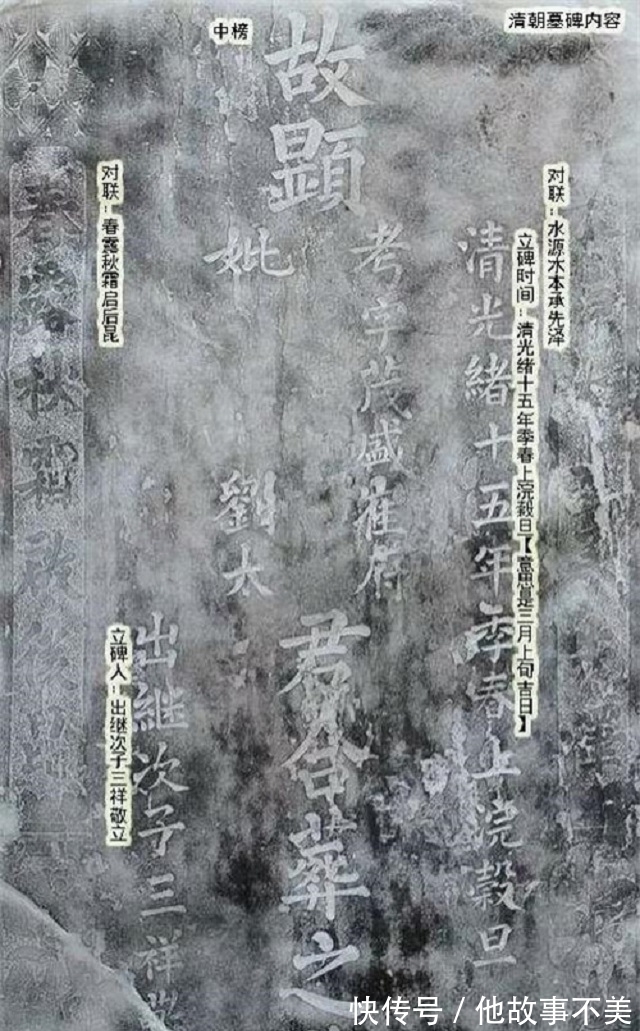 清朝墓碑内容
中榜
对联：水源木本承先泽
立碑时间：清光绪十五年季春上浣穀旦【意思是三月上旬吉日】
清光緒十五年季春上浣穀旦
故顯
考字茂盛崔府
妣
劉太
君合葬之
出継次子三祥敬
立碑人：出继次子三祥敬立
对联：春露秋霜启后昆
春露秋霜啟
快传号/他故事不美